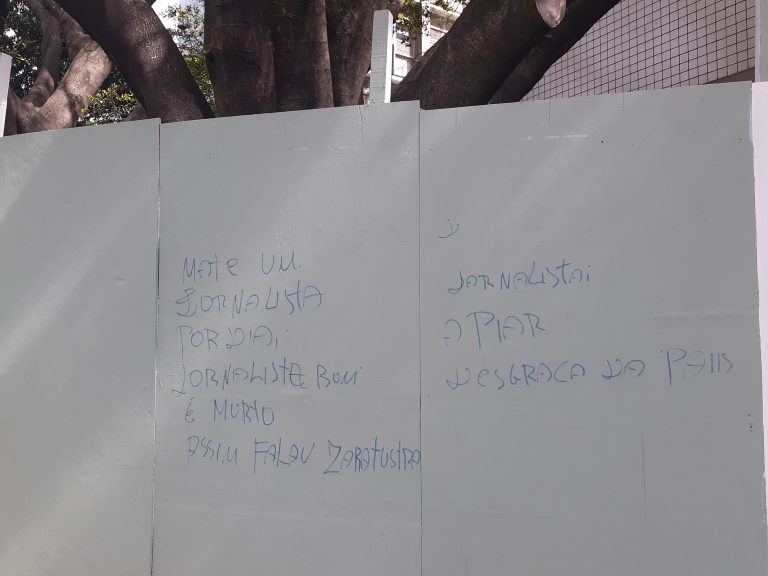 MATE UM
JORNALISTA
POR DIA,
JORNALISTE BOM
É MURTO
ASSIM FALAU ZARATUSTRA
JORNALISTAI
A PIAR
DESGRAÇA DA PAIIS